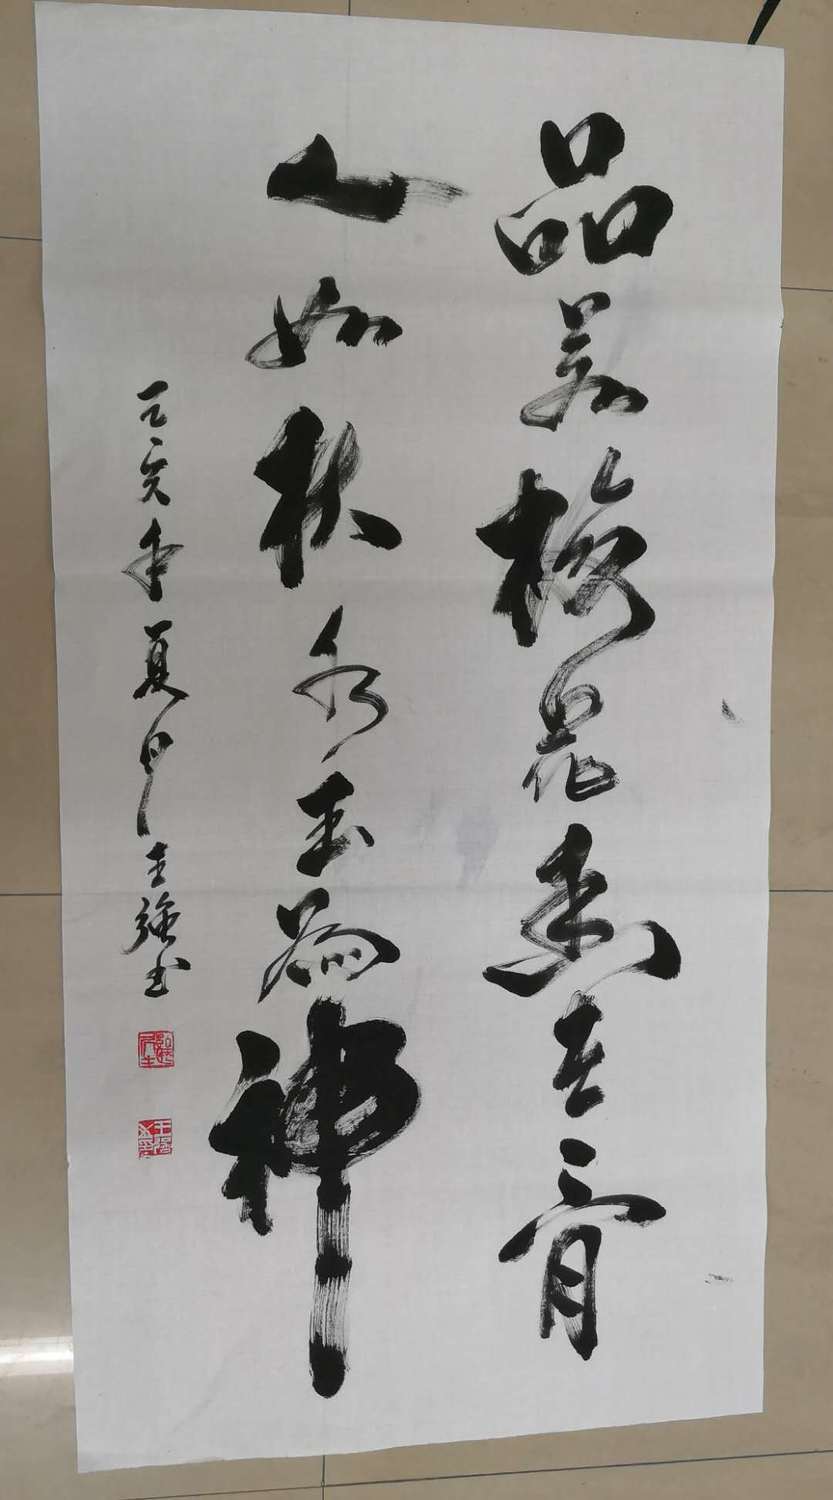 品若梅花香在骨
人如秋水玉為神
己亥年夏 王強书